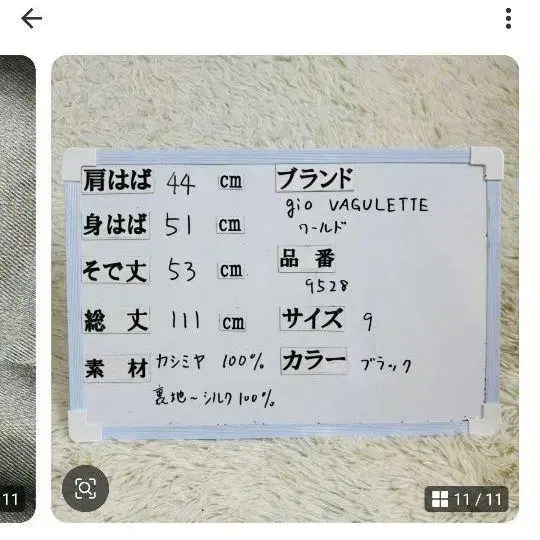 肩はば 44 cm
身はば 51 cm
そで丈 53 cm
総丈 111 cm
素材 カシミヤ 100%
裏地~シルク100%
ブランド
gio VAGULETTE
ワールド
品番
9528
サイズ 9
カラー ブラック
11
11 / 11